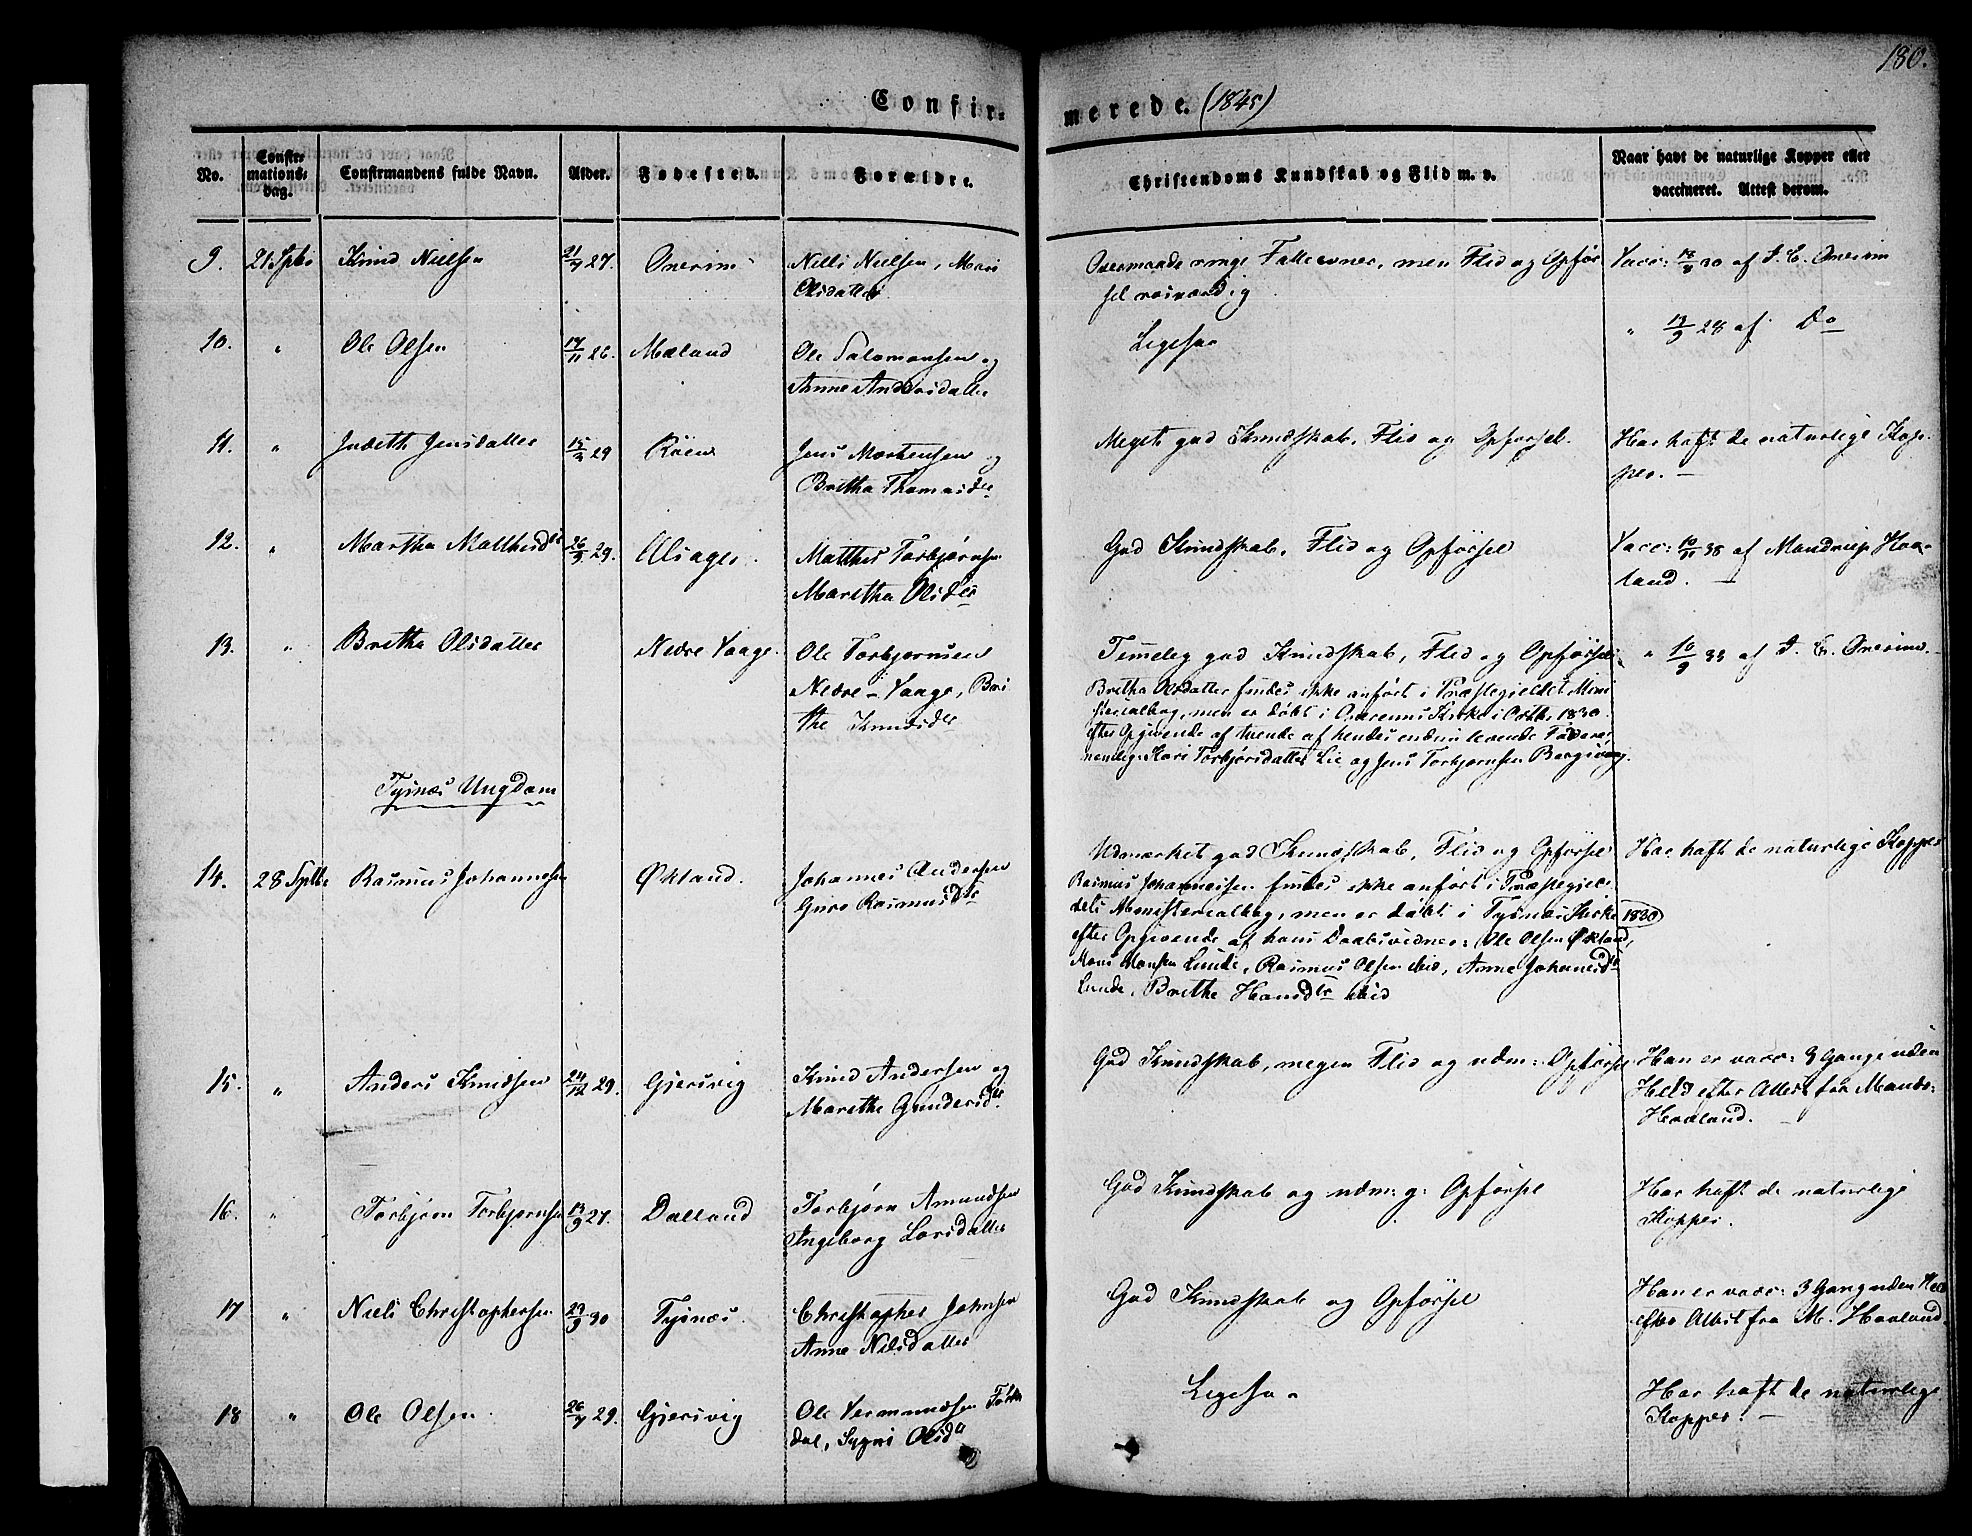 180.
Confirmerede. (1845)
No.
Confirmationsdag.
Confirmandens fulde Navn.
Alder.
Fødested.
Forældre.
Christendoms Kundskab og Flid m. v.
Naar havt de naturlige Kopper eller vaccineret. Attest derom.
9. 21 Sptbr Knud Nielsen 21/4 27. Onerim Niels Nielsen, Mari
Olsdatter
Overmaade ringe Fatteevner, men Flid og Opfør
sel roesværdig
Vacc: 18/8 30 af S. C. Onerim
10. " Ole Olsen 17/11 26. Mæland Ole Salomonsen og
Anne Andersdatter
Ligesaa
" 17/9 28 af Do
11. " Judith Jensdatter 15/2 29 Røen Jens Mortensen og
Britha Thomasdtr
Meget god Kundskab, Flid og Opførsel.
Har haft de naturlige Kop-
per. —
12. " Martha Matthisdtr 26/3 29. Alsager. Matthis Torbjørnsen
Maritha Olsdtr
God Kundskab, Flid og Opførsel
Vacc: 10/11 38 af Mandrup Haa-
land. —
13. " Britha Olsdatter Nedre Vaage. Ole Torbjørnsen
Nedre-Vaage, Bri
the Knudsdtr
Temmelig god Kundskab, Flid og Opførsel.
Britha Olsdatter findes ikke anført i Præstegjeldets Mini
sterialbog, men er døbt i Onerims Kirke i Octbr 1830
efter Opgivende af tvende af hendes endnu levende Faddere,
nemlig: Kari Torbjørsdatter Lie og Jens Torbjørnsen Bergsvaag.
" 10/9 33 af S. C. Onerim.
Tysnæs Ungdom
14. 28 Sptbr Rasmus Johannesen Økland. Johannes Andersen
Guro Rasmusdtr
Udmærket god Kundskab, Flid og Opførsel
Rasmus Johannesen findes ikke anført i Præstegjel
dets Ministerialbog, men er døbt i Tysnæs Kirke 1830
efter Opgivende af hans Daabsvidner: Ole Olsen Økland,
Mons Monsen Lunde, Rasmus Olsen ibid, Anne Johannesdtr
Lunde, Brithe Hansdtr ibid
Har haft de naturlige Kopper
15. " Anders Knudsen 24/12 29. Gjersvig Knud Andersen og
Marethe Gundersdtr
God Kundskab, megen Flid og udm: Opførsel
Han er vacc: 3 Gange uden
Held efter Attest fra Mandr:
Haaland. —
16. " Torbjørn Torbjørnsen 13/9 27. Dalland Torbjørn Amundsen
Ingeborg Larsdatter
God Kundskab og udm: g: Opførsel
Har haft de naturlige
Kopper.
17 " Niels Christophersen 29/3 30 Tysnæs. Christopher Johnsen
Anne Nilsdatter
God Kundskab og Opførsel
Han er vacc: 3 Gang uden Held
efter Attest fra M. Haaland.
18 " Ole Olsen 26/4 29. Gjersvig Ole Vermundsen
dal, Sygni Olsdtr
Ligesaa
Har haft de naturlige
Kopper. —